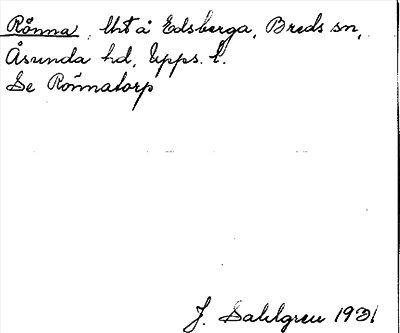 Rönna, lht å Edsberga, Breds sn,
Åsunda hd, Upps. l.
Se Rönnatorp
J. Sahlgren 1931